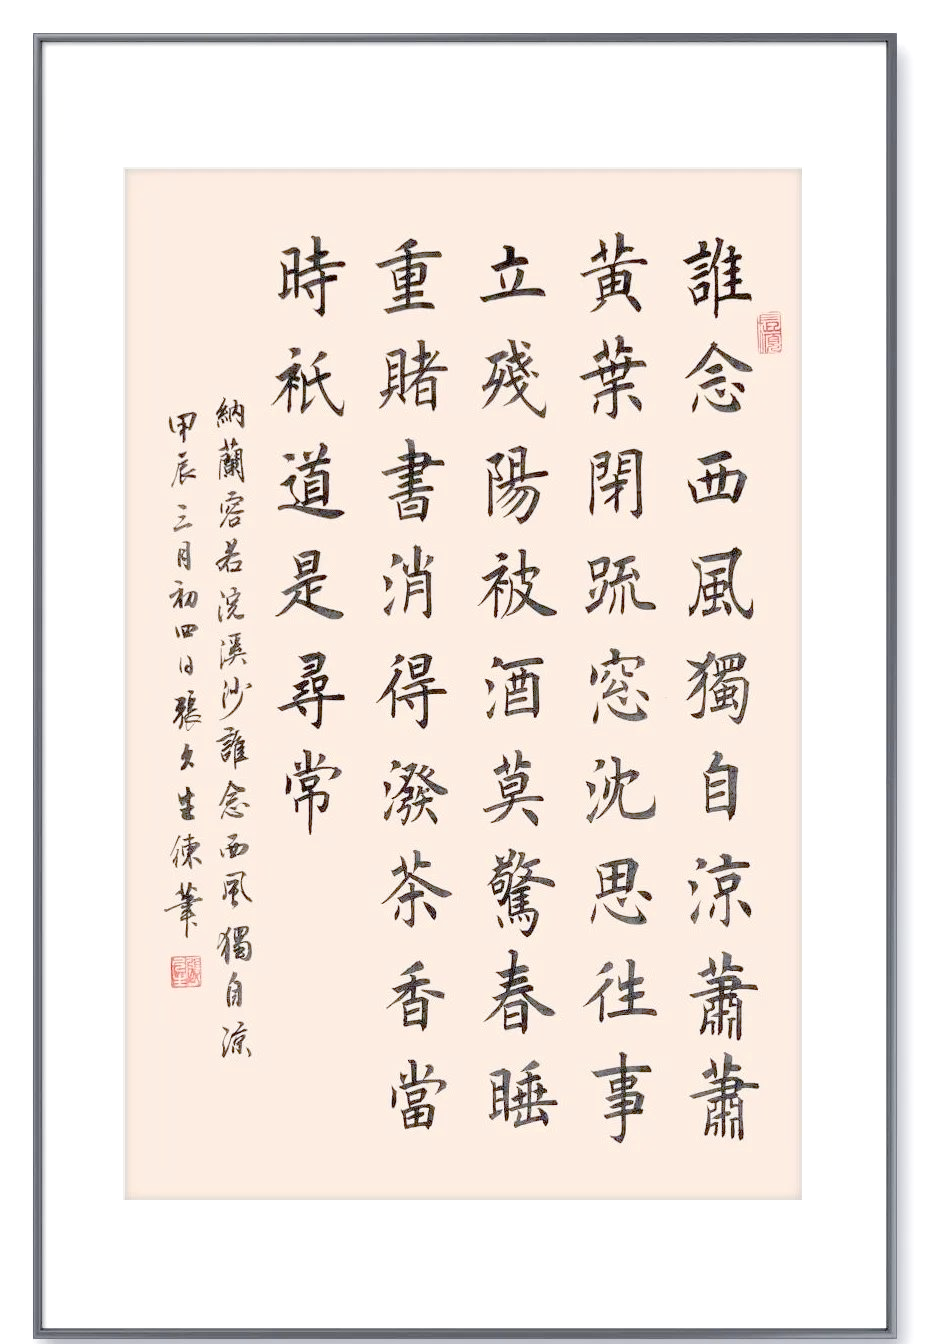 誰念西風獨自涼蕭蕭
黃葉閉疏窓沈思徃事
立殘陽被酒莫驚春睡
重賭書消得潑茶香當
時衹道是尋常
納蘭容若浣溪沙誰念西風獨自涼
甲辰三月初四日張久生練筆